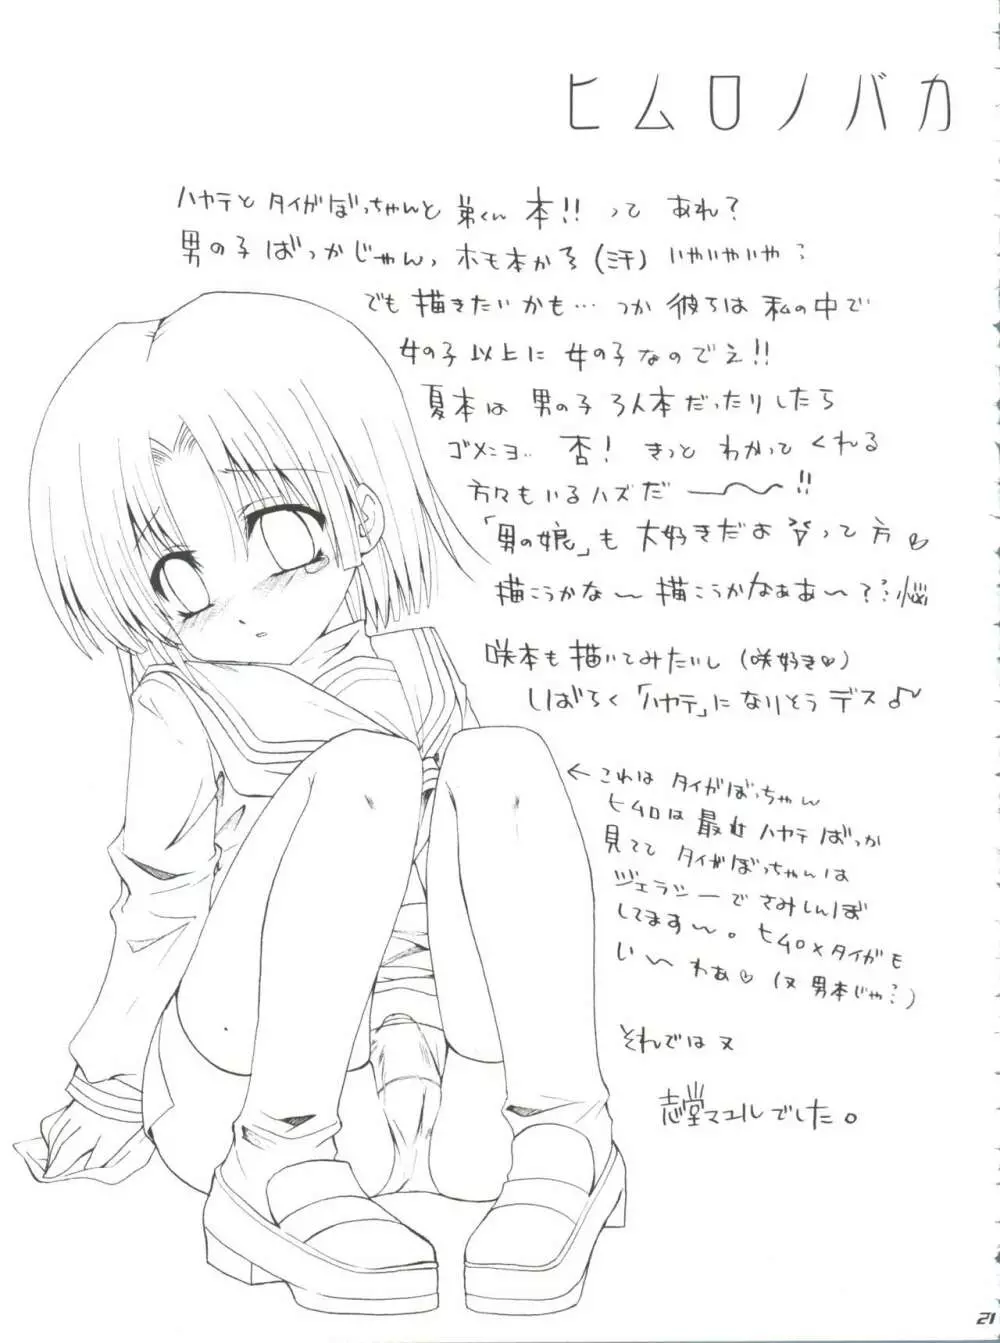 ヒムロノバカ
ハヤテとタイガぼっちゃんと弟くん本!!ってあれ?
男の子ばっかじゃんっ ホモ本かそ(汗)いやいやいや?
でも描きたいかも… つか彼らは私の中で
女の子以上に女の子なのでえ!!
夏本は男の子3人本だったりしたら
ゴメニョ.. 否! きっとわかってくれる
方々もいるハズだ〜!!
「男の娘」も大好きだよって方♡
描こうかな〜描こうかなぁあ〜??悩
咲本も描いてみたいし(咲好き♡)
しばらく「ハヤテ」になりそうデス♪
←これはタイガぼっちゃん
ヒムロは最近ハヤテばっか
見ててタイガぼっちゃんは
ジェラシーでさみしんぼ
してます〜。ヒムロ×タイガも
い〜わぁ♡(又男本じゃ?)
それでは又
志堂マユルでした。
21